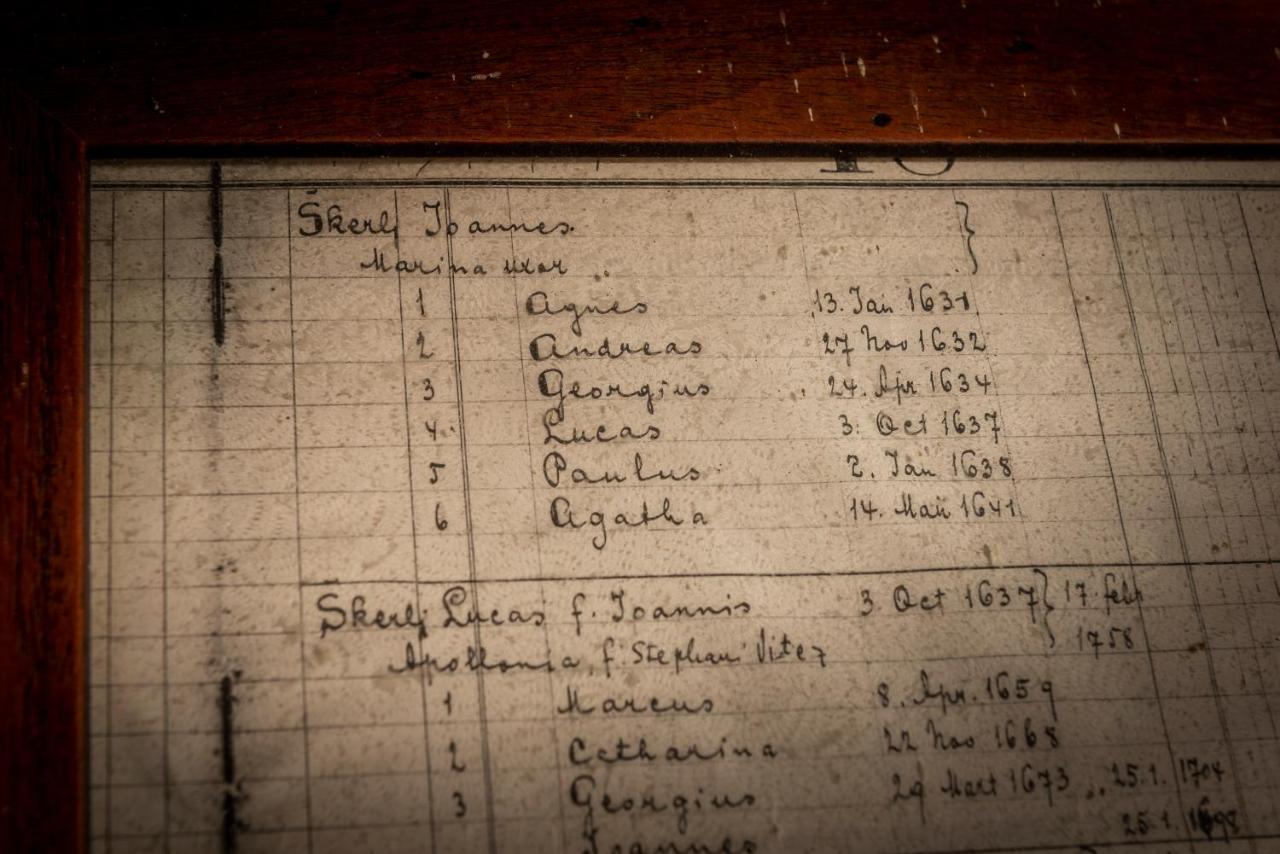 Škerlj Joannes.
Marina uxor }
1 Agnes 13. Jan 1631
2 Andreas 27 Nov 1632
3 Georgius 24. Apr 1634
4. Lucas 3. Oct 1637
5 Paulus 2. Jan 1638
6 Agatha 14. Maii 1641
Škerlj Lucas f. Joannis 3 Oct 1637 } 17. febr
Apollonia f. Stephani Vitez 1758
1 Marcus 8. Apr. 1659
2 Catharina 22 Nov 1668
3 Georgius 29 Mart 1673 25.1. 1704
Joannes 25.1.